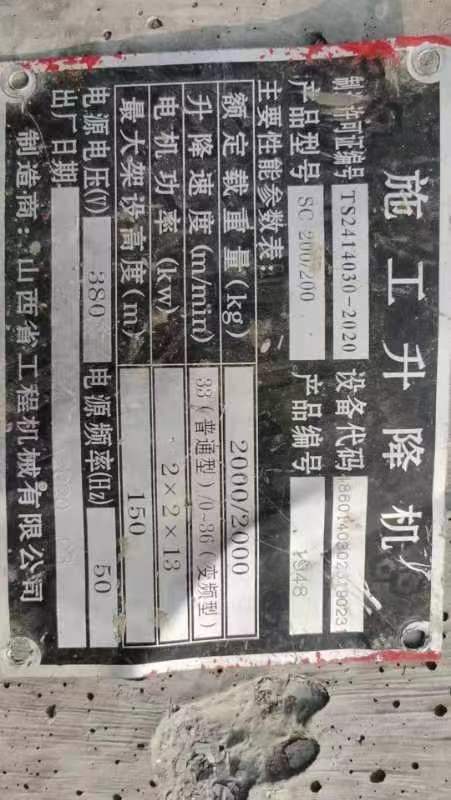 施工升降机
制造许可证编号 TS2414030-2020 设备代码
产品型号 SC 200/200 产品编号
主要性能参数表:
额定载重量(kg) 2000/2000
升降速度(m/min) 33(普通型)/0~36(变频型)
电机功率(kw) 2×2×13
最大架设高度(m) 150
电源电压(V) 380 电源频率(Hz) 50
出厂日期
制造商:山西省工程机械有限公司